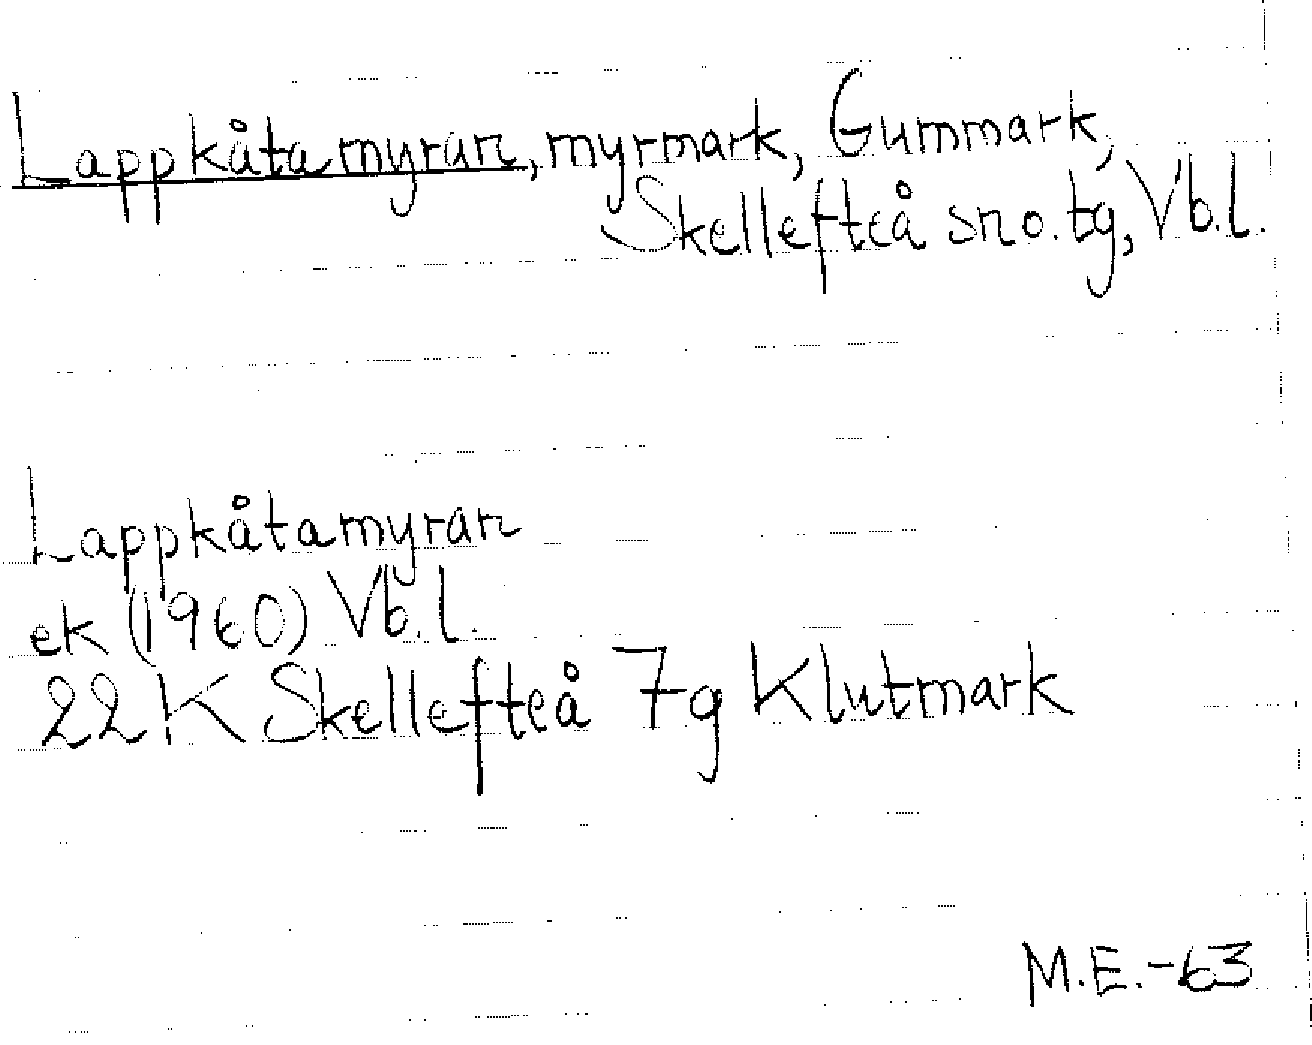 Lappkåtamyran, myrmark, Gummark,
Skellefteå sno. tg, Vb.l.
Lappkåtamyran
ek (1960) Vb.l.
22 K Skellefteå 7g Klutmark
M.E.-63